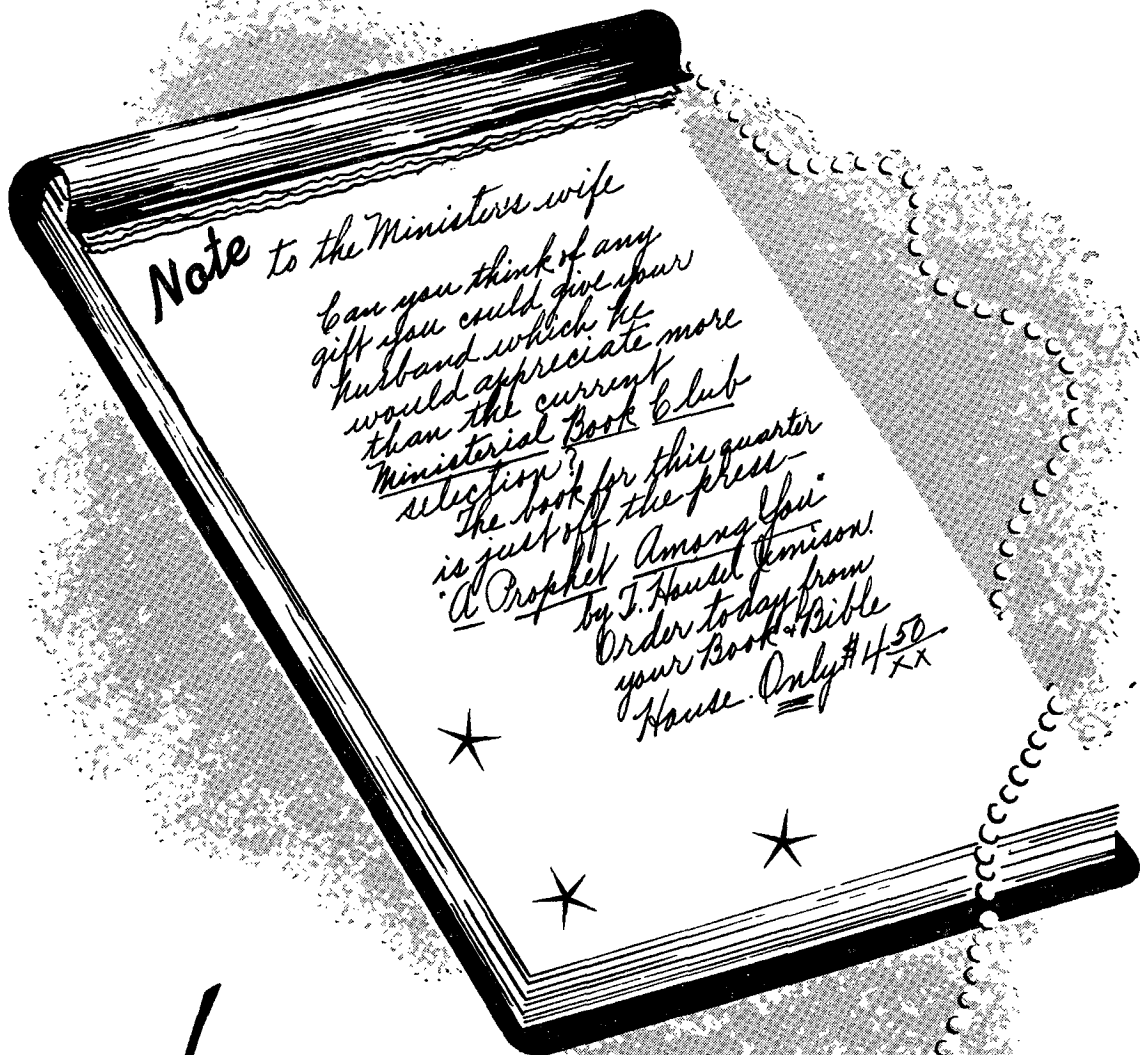 Note to the Minister's wife
Can you think of any
gift you could give your
husband which he
would appreciate more
than the current
Ministerial Book Club
selection?
The book for this quarter
is just off the press—
"A Prophet Among You"
by T. Housel Jemison.
Order today from
your Book & Bible
House. Only $4 50
xx